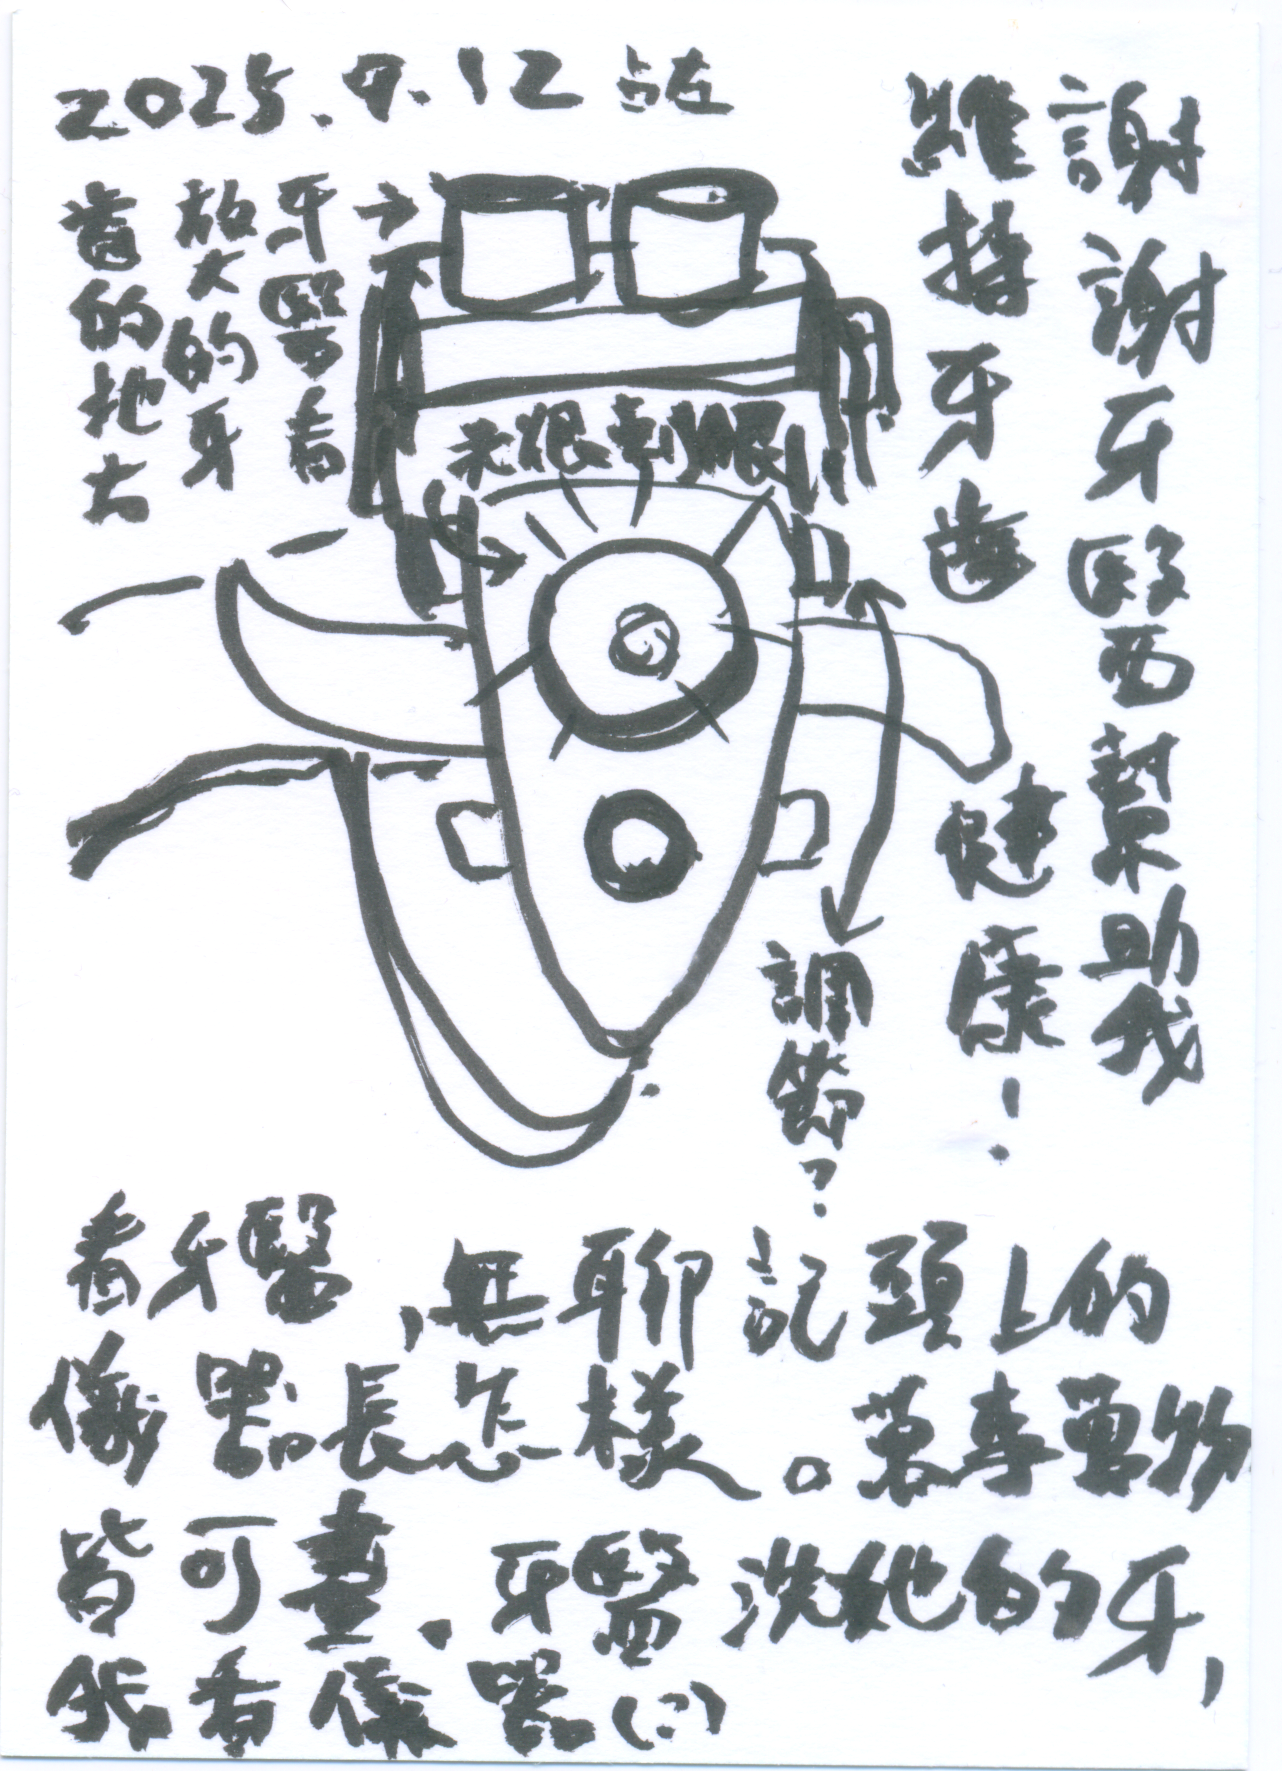 2025.9.12
謝謝牙醫幫助我
維持牙齒健康!
牙醫看
放大的牙
齒的地方
光很刺眼
調節?
看牙醫,無聊記頭上的
儀器長怎樣。萬事萬物
皆可畫.牙醫洗她的牙,
我看儀器(:)